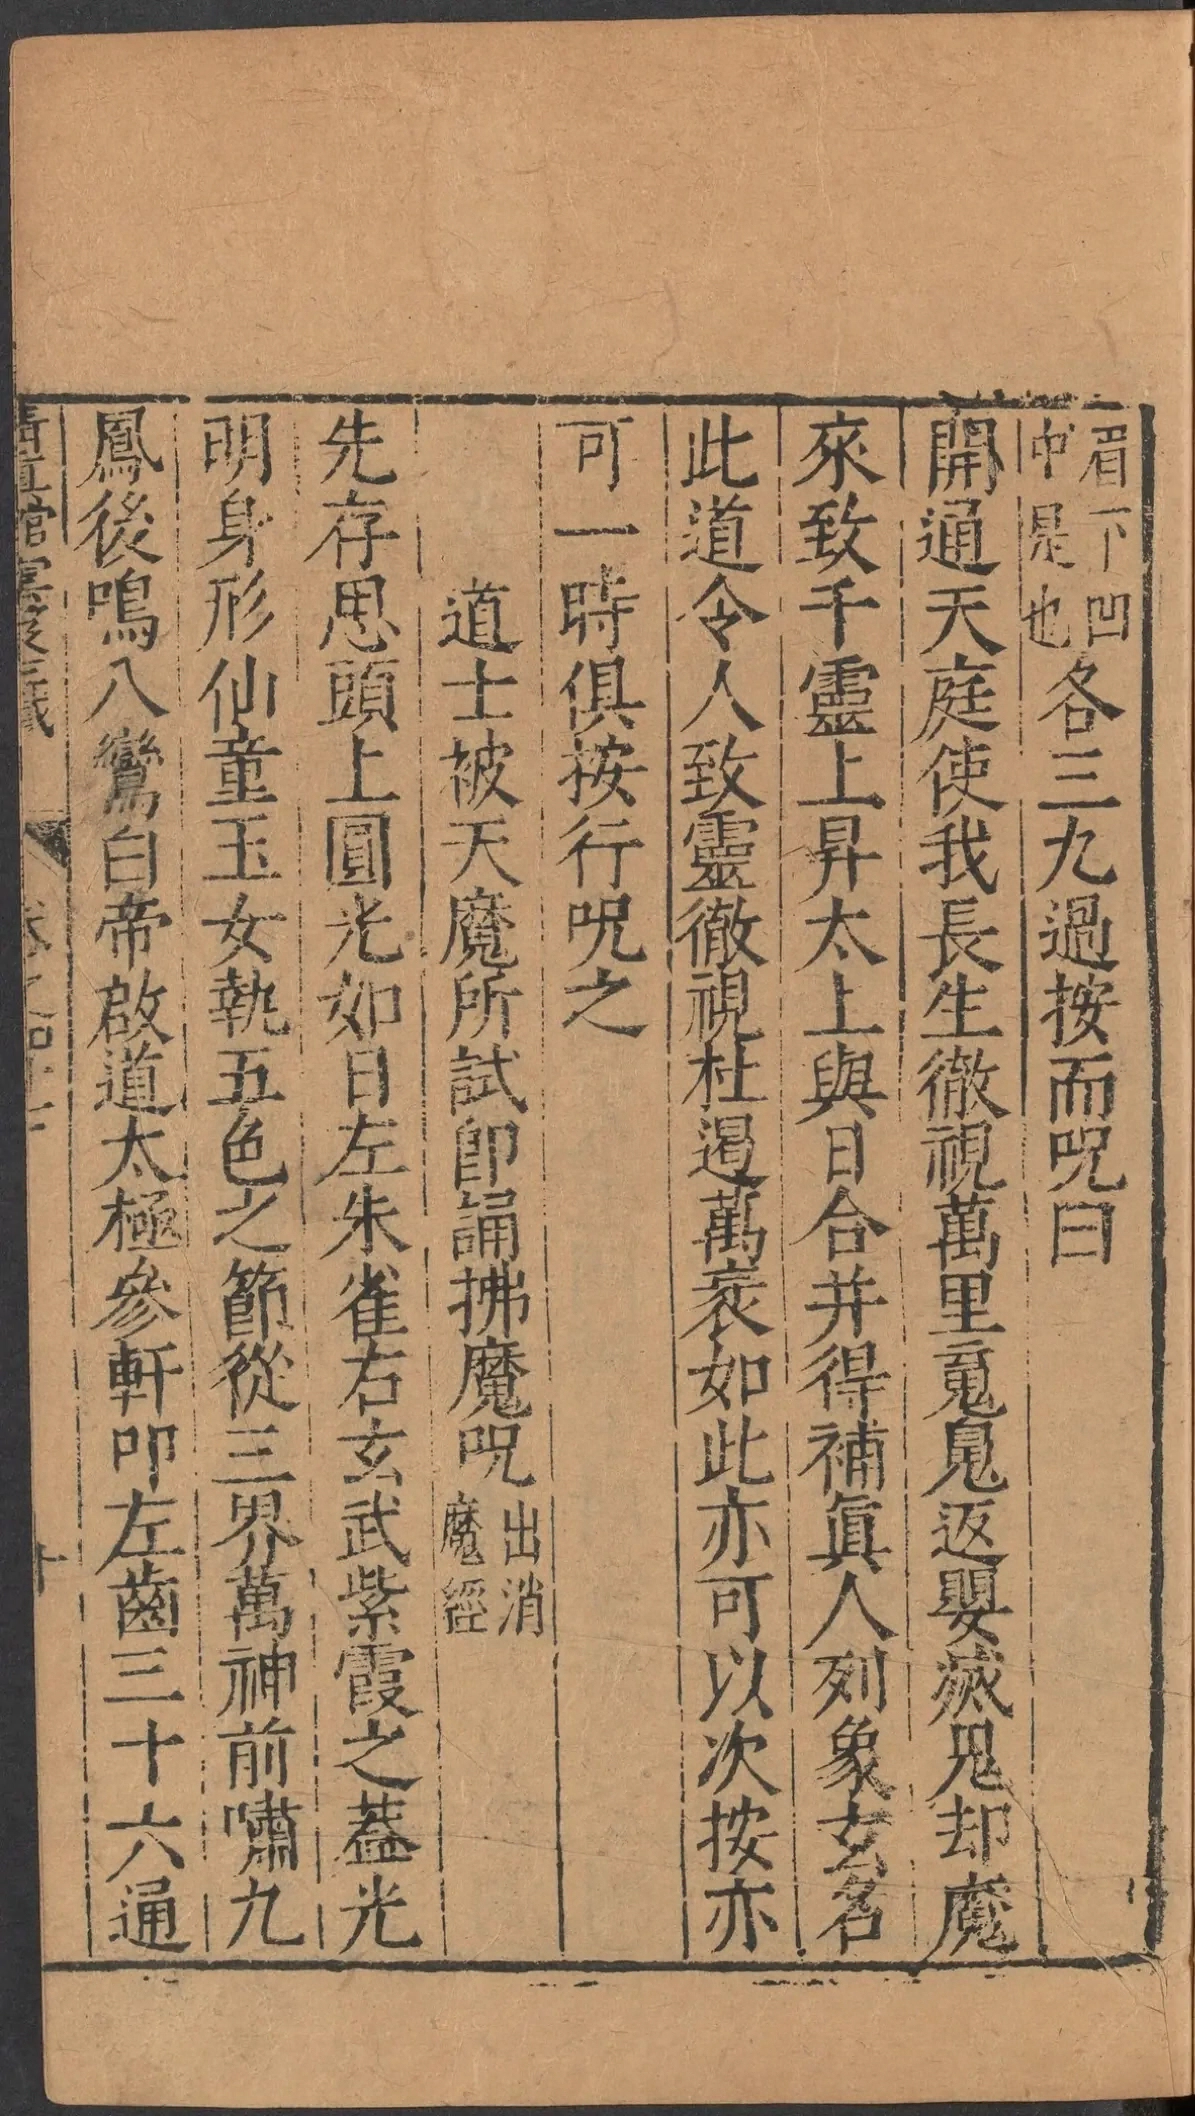 眉下凹中是也各三九過按而呪曰
開通天庭使我長生徹視萬里魂鬼返嬰滅鬼却魔
來致千靈上昇太上與日合并得補眞人列象玄名
此道令人致靈徹視杜遏萬衺如此亦可以次按亦
可一時俱按行呪之
道士被天魔所試卽誦拂魔呪出消魔經
先存思頭上圓光如日左朱雀右玄武紫霞之葢光
明身形仙童玉女執五色之節從三界萬神前嘯九
鳳後鳴八鸞白帝啟道太極參軒叩左齒三十六通